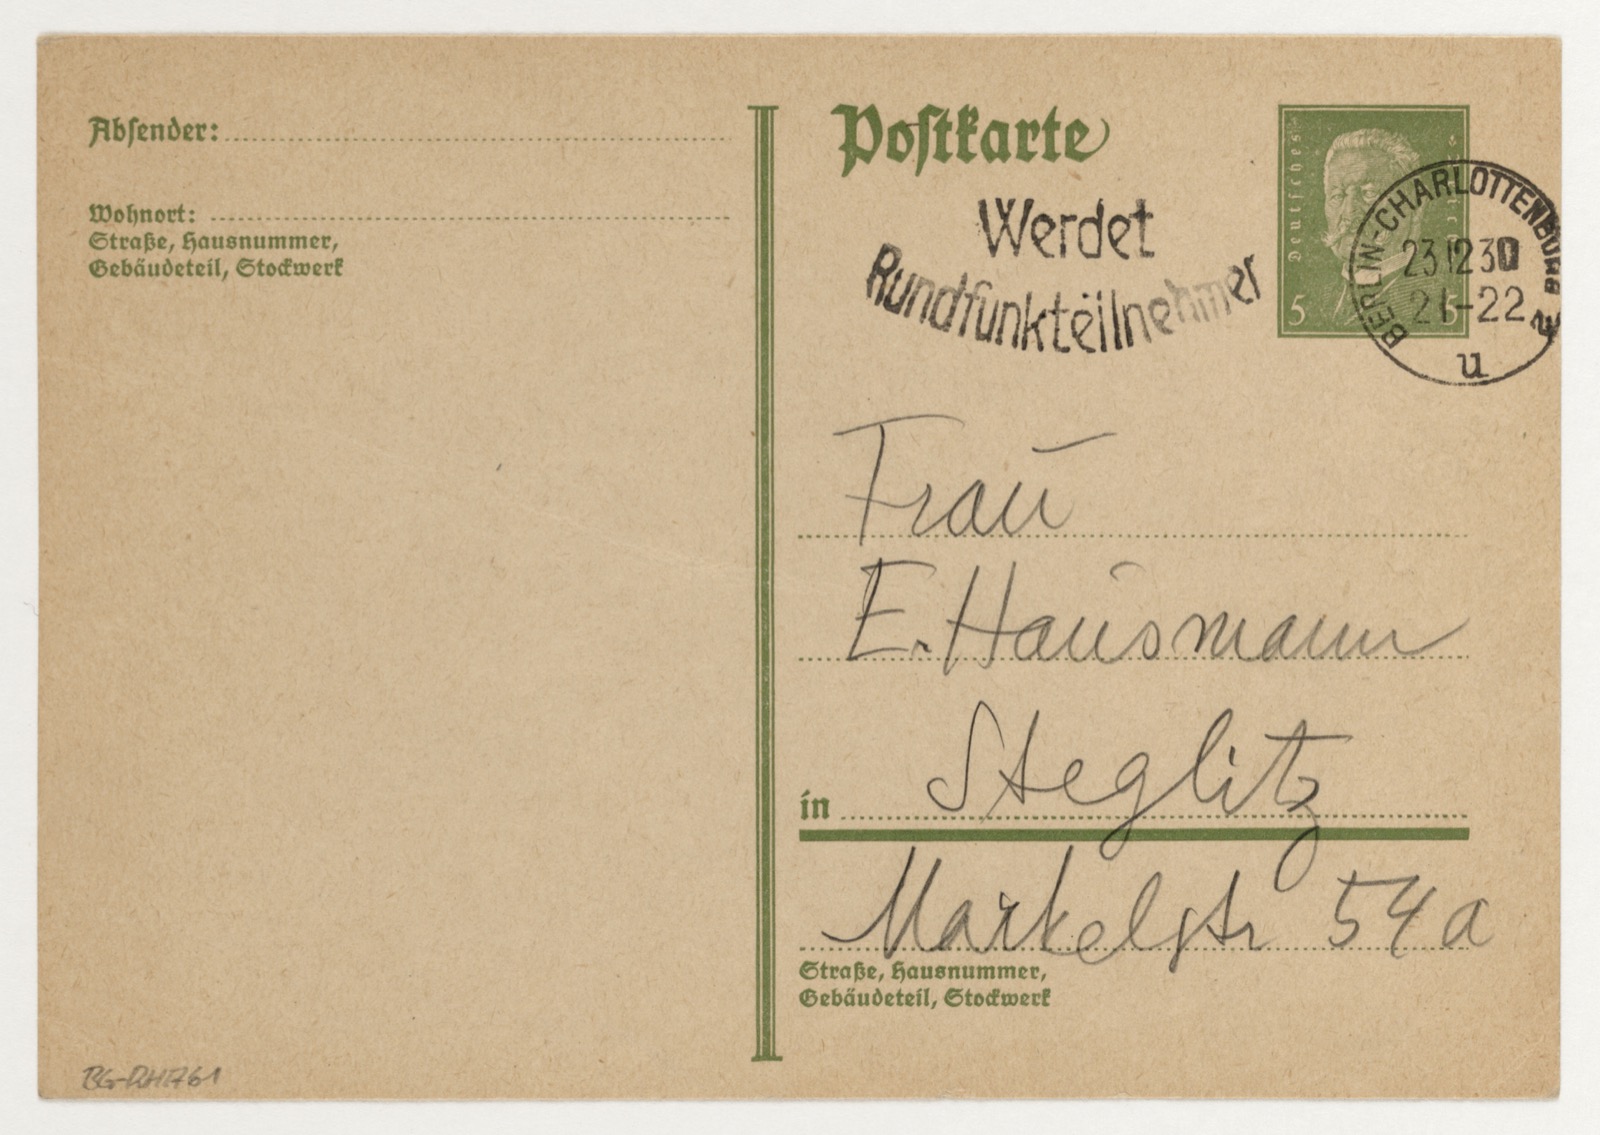 Absender:
Wohnort:
Straße, Hausnummer,
Gebäudeteil, Stockwerk
Postkarte
Werdet
Rundfunkteilnehmer
Deutsches
5 5
BERLIN-CHARLOTTENBURG 2
23.12.30
21-22
u
Frau
E. Hausmann
in Steglitz
Markelstr 54a
Straße, Hausnummer,
Gebäudeteil, Stockwerk
BG-RHE761